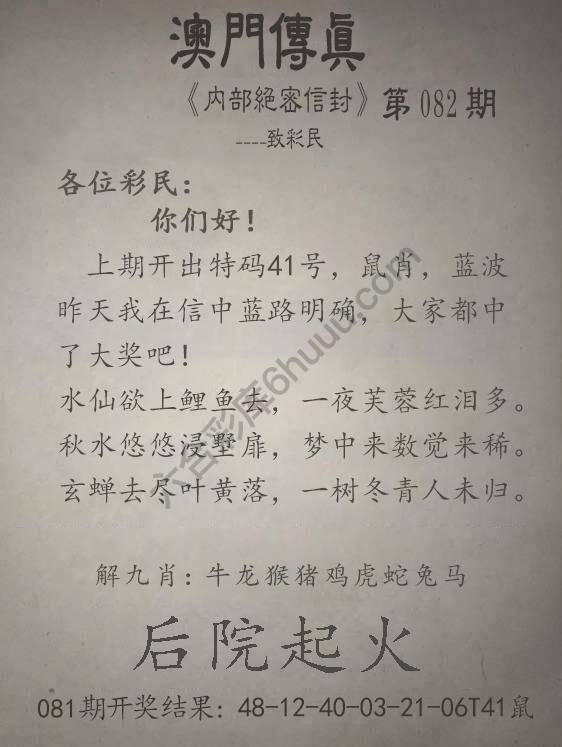 澳門傳眞
《内部絕密信封》第082期
----致彩民
各位彩民：
你们好！
上期开出特码41号，鼠肖，蓝波
昨天我在信中蓝路明确，大家都中
了大奖吧！
水仙欲上鲤鱼去，一夜芙蓉红泪多。
秋水悠悠浸墅扉，梦中来数觉来稀。
玄蝉去尽叶黄落，一树冬青人未归。
解九肖：牛龙猴猪鸡虎蛇兔马
后院起火
081期开奖结果：48-12-40-03-21-06T41鼠
六合彩库6huuu.com